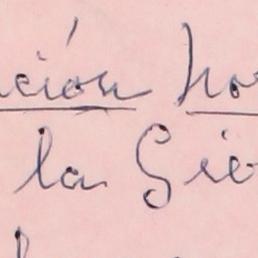 ción ho
la Gie